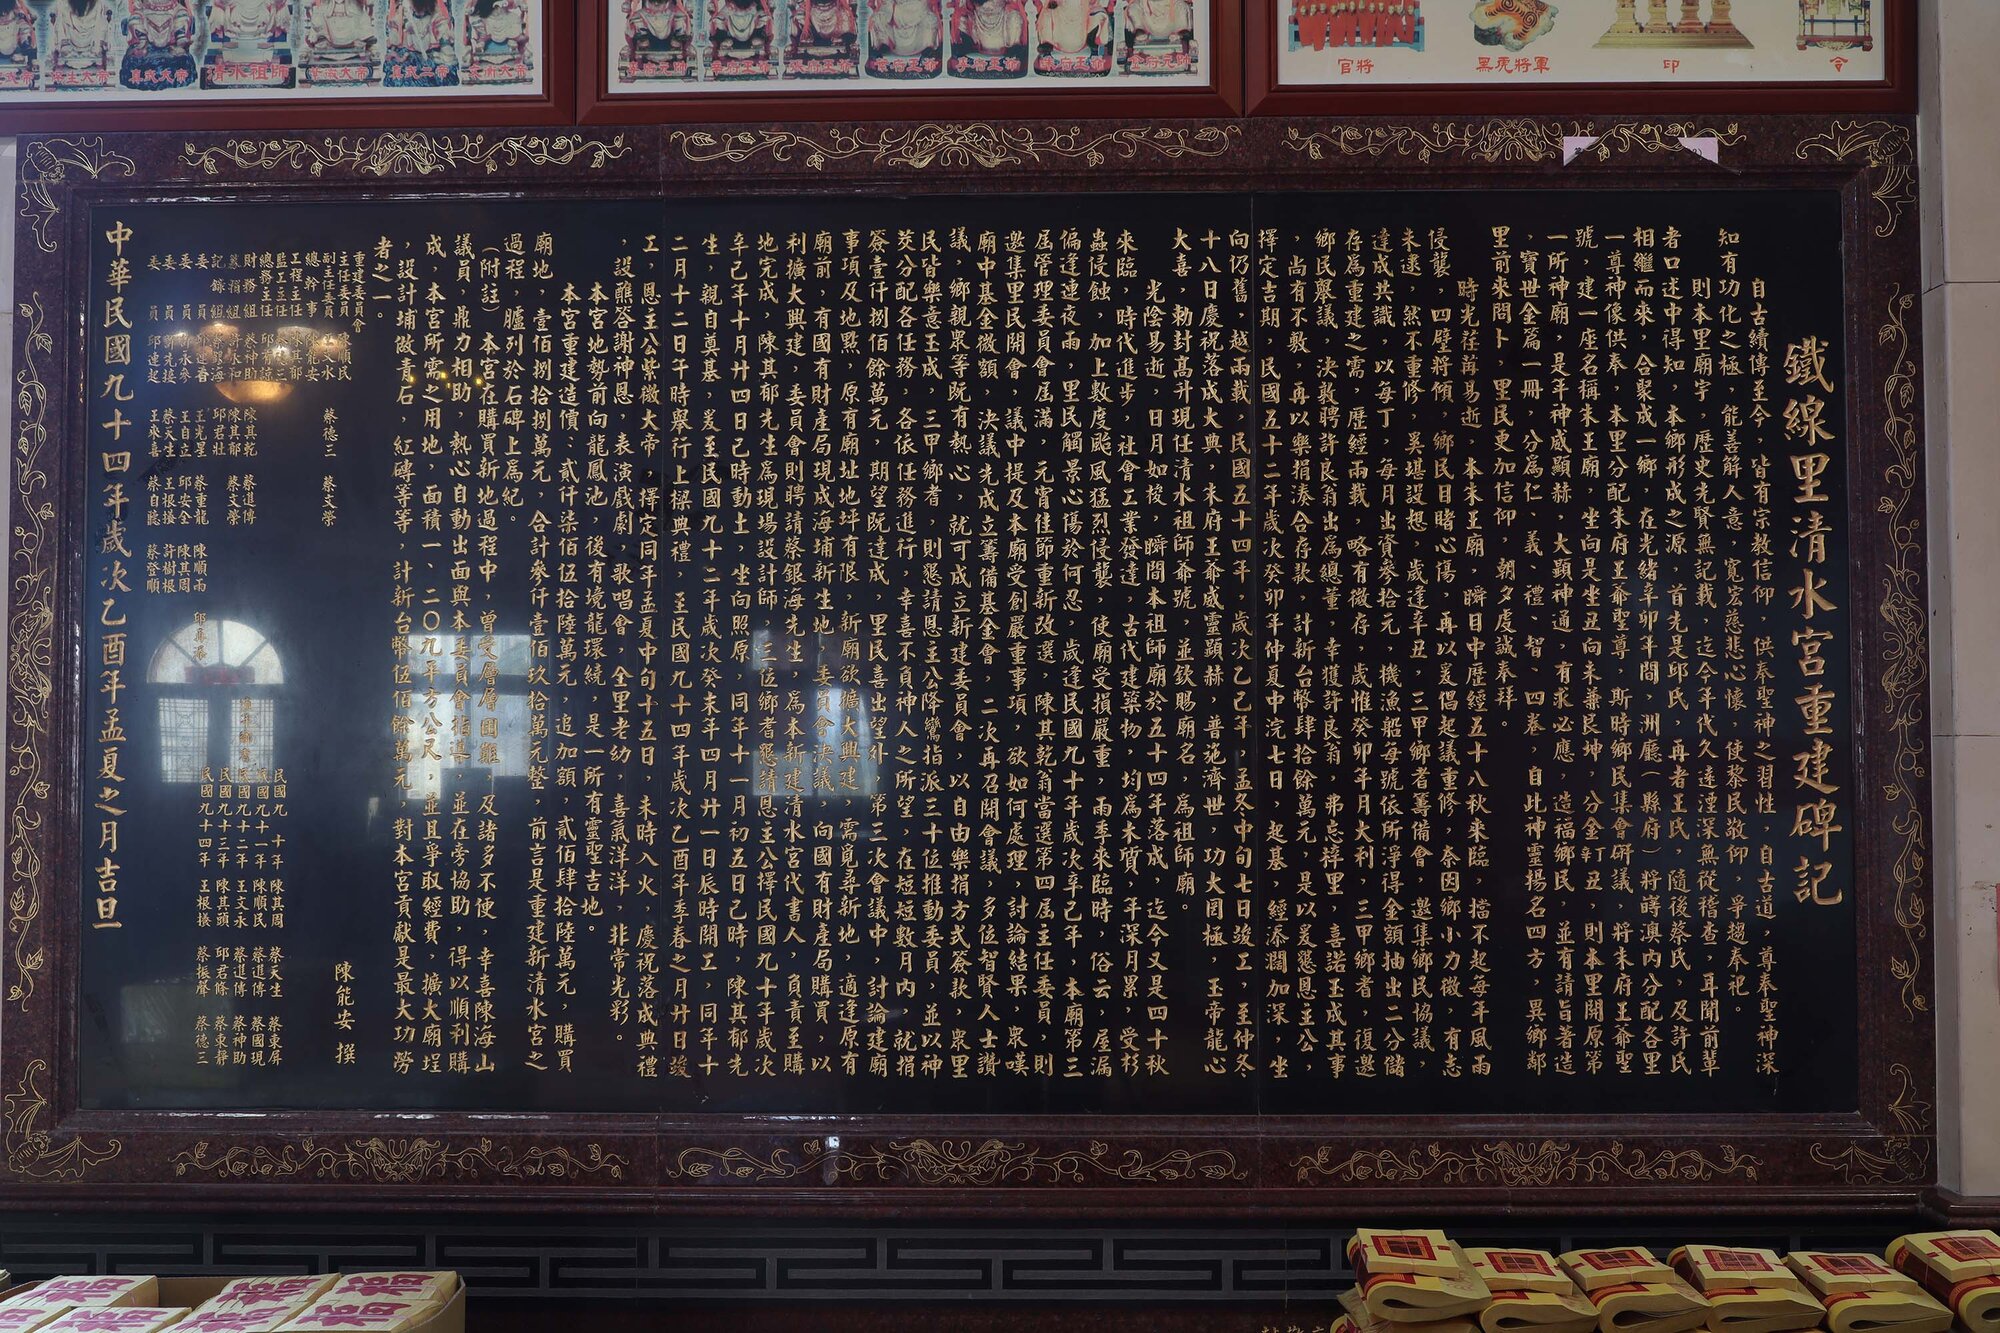 官將
黑虎將軍
印
令
清水祖師
鐵線里清水宮重建碑記
自古續傳至今，皆有宗教信仰，供奉聖神之習性，自古道，尊奉聖神深
知有功化之極，能善解人意，寬宏慈悲心懷，使黎民敬仰，爭趨奉祀。
則本里廟宇，歷史先賢無記載，迄今年代久遠湮深無從稽查，耳聞前輩
者口述中得知，本鄉形成之源，首先是邱氏，再者王氏，隨後蔡氏，及許氏
相繼而來，合聚成一鄉，在光緒辛卯年間，洲廳（縣府）將嵵澳內分配各里
一尊神像供奉，本里分配朱府王爺聖尊，斯時鄉民集會研議，將朱府王爺聖
號，建一座名稱朱王廟，坐向是坐丑向未兼艮坤，分金釘辛丑，則本里開原第
一所神廟，是年神威顯赫，大顯神通，有求必應，造福鄉民，並有請旨著造
，寶世金篇一冊，分為仁、義、禮、智、四卷，自此神靈揚名四方，異鄉鄰
里前來問卜，里民更加信仰，朝夕虔誠奉拜。
時光荏苒易逝，本朱王廟，瞬日中歷經五十八秋來臨，擋不起每年風雨
侵襲，四壁將傾，鄉民日睹心傷，再以爰倡起議重修，奈因鄉小力微，有志
未逮，然不重修，奚堪設想，歲逢辛丑，三甲鄉者籌備會，邀集鄉民協議，
達成共識，以每丁，每月出資參拾元，機漁船每號依所淨得金額抽出二分儲
存為重建之需，歷經兩載，略有微存，歲惟癸卯年月大利，三甲鄉者，復邀
鄉民舉議，決敦聘許良翁出為總董，幸獲許良翁，弗忘祥里，喜諾玉成其事
，尚有不敷，再以樂捐湊合存款，計新台幣肆拾餘萬元，是以爰懇恩主公，
擇定吉期，民國五十二年歲次癸卯年仲夏中浣七日，起基，經添濶加深，坐
向仍舊，越兩載，民國五十四年，歲次乙巳年，孟冬中旬七日竣工，至仲冬
十八日慶祝落成大典，朱府王爺威靈顯赫，普施濟世，功大罔極，玉帝龍心
大喜，勅封高升現任清水祖師爺號，並欽賜廟名，為祖師廟。
光陰易逝，日月如梭，瞬間本祖師廟於五十四年落成，迄今又是四十秋
來臨，時代進步，社會工業發達，古代建築物，均為木質，年深月累，受杉
蟲侵蝕，加上數度颱風猛烈侵襲，使廟受損嚴重，雨季來臨時，俗云，屋漏
偏逢連夜雨，里民觸景心傷於何忍，歲逢民國九十年歲次辛巳年，本廟第三
屆管理委員會屆滿，元宵佳節重新改選，陳其乾翁當選第四屆主任委員，則
邀集里民開會，議中提及本廟受創嚴重事項，欲如何處理，討論結果，眾嘆
廟中基金微額，決議先成立籌備基金會，二次再召開會議，多位智賢人士讚
議，鄉親眾等既有熱心，就可成立新建委員會，以自由樂捐方式簽款，眾里
民皆樂意玉成，三甲鄉者，則懇請恩主公降鸞指派三十位推動委員，並以神
筊分配各任務，各依任務進行，幸喜不負神人之所望，在短短數月內，就捐
簽壹仟捌佰餘萬元，期望既達成，里民喜出望外，第三次會議中，討論建廟
事項及地點，原有廟址地坪有限，新廟欲擴大興建，需覓尋新地，適逢原有
廟前，有國有財產局現成海埔新生地，委員會決議，向國有財產局購買，以
利擴大興建，委員會則聘請蔡銀海先生，為本新建清水宮代書人，負責至購
地完成，陳其郁先生為現場設計師，三位鄉者懇請恩主公擇民國九十年歲次
辛己年十月廿四日己時動土，坐向照原，同年十一月初五日己時，陳其郁先
生，親自奠基，爰至民國九十二年歲次癸未年四月廿一日辰時開工，同年十
二月十二日午時舉行上樑典禮，至民國九十四年歲次乙酉年季春之月廿日竣
工，恩主公紫微大帝，擇定同年孟夏中旬十五日，未時入火，慶祝落成典禮
，設醮答謝神恩，表演戲劇，歌唱會，全里老幼，喜氣洋洋，非常光彩。
本宮地勢前向龍鳳池，後有境龍環繞，是一所有靈聖吉地。
本宮重建造價：貳仟柒佰伍拾陸萬元，追加額，貳佰肆拾陸萬元，購買
廟地，壹佰捌拾捌萬元，合計參仟壹佰玖拾萬元整，前言是重建新清水宮之
過程，臚列於石碑上為紀。
（附註）本宮在購買新地過程中，曾受層層困難，及諸多不便，幸喜陳海山
議員，鼎力相助，熱心自動出面與本委員會指導，並在旁協助，得以順利購
成，本宮所需之用地，面積一、二０九平方公尺，並且爭取經費，擴大廟埕
，設計埔做青石，紅磚等等，計新台幣伍佰餘萬元，對本宮貢獻是最大功勞
者之一。
陳能安 撰
重建委員會
主任委員 陳順民
副主任委員 蔡德三 蔡文榮
總幹事
工程主任
監工主任
總務主任
財務組 蔡神助 陳其乾 蔡進傳
募捐組 許水和 陳其郁 蔡文榮
記錄組 邱君壯
委員 王光星 蔡重龍 陳順雨
委員 王自立 邱安全 陳其周
委員 蔡天生 王根接 許樹根
委員 邱連起 王來喜 蔡自聽 蔡登順
民國九十年 陳其周 蔡天生 蔡東屏
民國九十一年 陳順民 蔡進傳 蔡國現
民國九十二年 王文永 蔡進傳 蔡神助
民國九十三年 陳其頭 邱君條 蔡東靜
民國九十四年 王根接 蔡振聲 蔡德三
中華民國九十四年歲次乙酉年孟夏之月吉旦